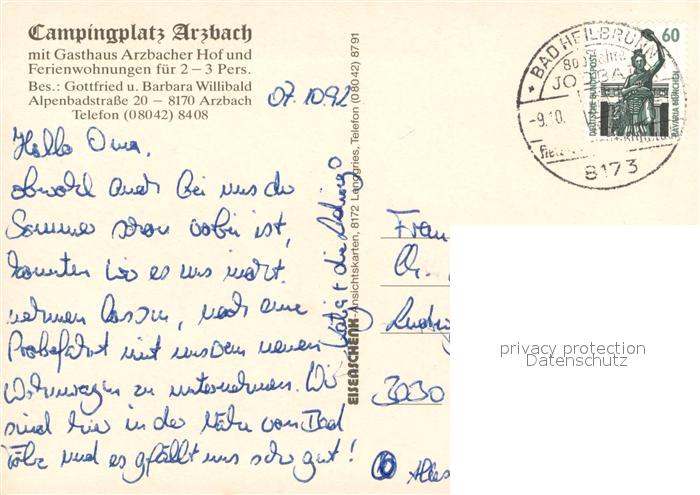 Campingplatz Arzbach
mit Gasthaus Arzbacher Hof und
Ferienwohnungen für 2 – 3 Pers.
Bes.: Gottfried u. Barbara Willibald
Alpenbadstraße 20 – 8170 Arzbach
Telefon (08042) 8408
07.10.92
Hallo Oma,
obwohl auch bei uns der
Sommer schon vorbei ist,
konnten wir es uns nicht
nehmen lassen, noch eine
Probefahrt mit unserem neuen
Wohnwagen zu unternehmen. Wir
sind hier in der Nähe von Bad
Tölz und es gefällt uns sehr gut!
EISENSCHENK-Ansichtskarten, 8172 Lenggries, Telefon (08042) 8791
die
BAD HEILBRUNN
800 Jahre
JODBAD
-9.10.
8173
60
DEUTSCHE BUNDESPOST
BAVARIA MÜNCHEN
Frau
Ludwig
3030
Alles
privacy protection
Datenschutz